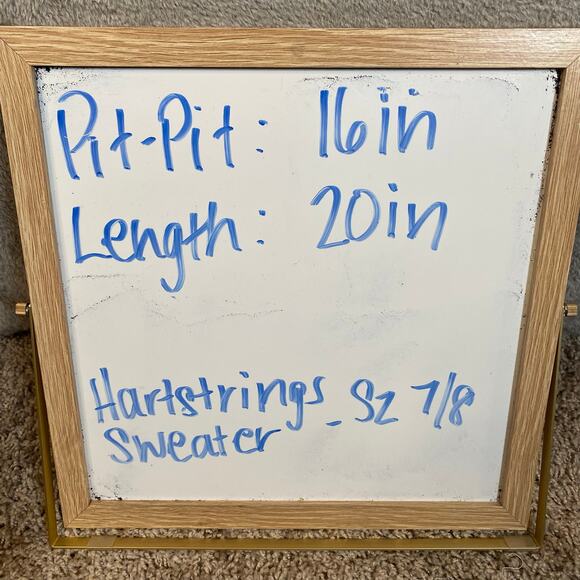 Pit-Pit: 16in
Length: 20in
Hartstrings
Sweater - Sz 7/8